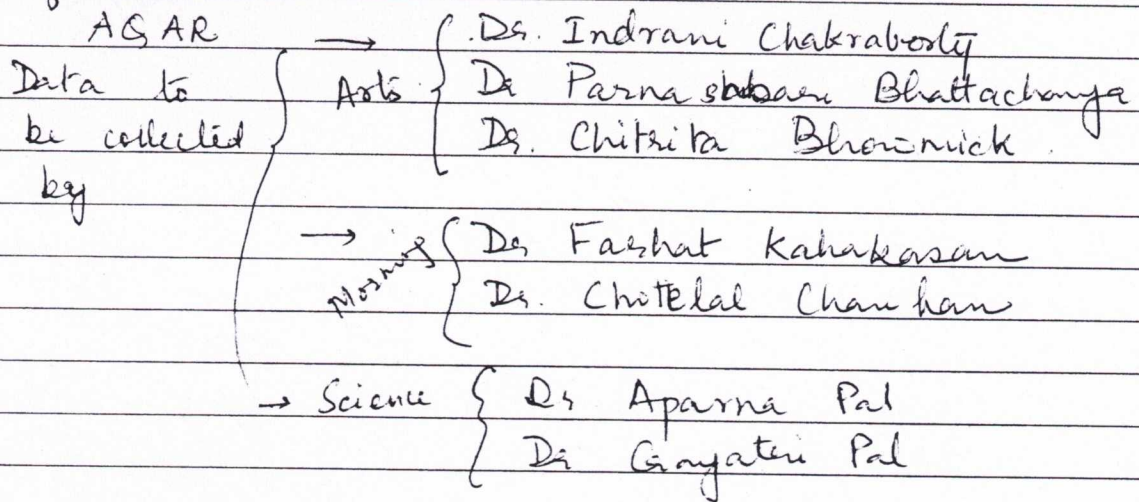 AQAR
Data to
be collected
by
→ Arts { Dr. Indrani Chakraborty
Dr Parna Bhattacharya
Dr. Chitrita Bhowmick.
→ Morning { Dr Farhat Kahakasan
Dr. Chotelal Chauhan
→ Science { Dr Aparna Pal
Dr Gayatri Pal